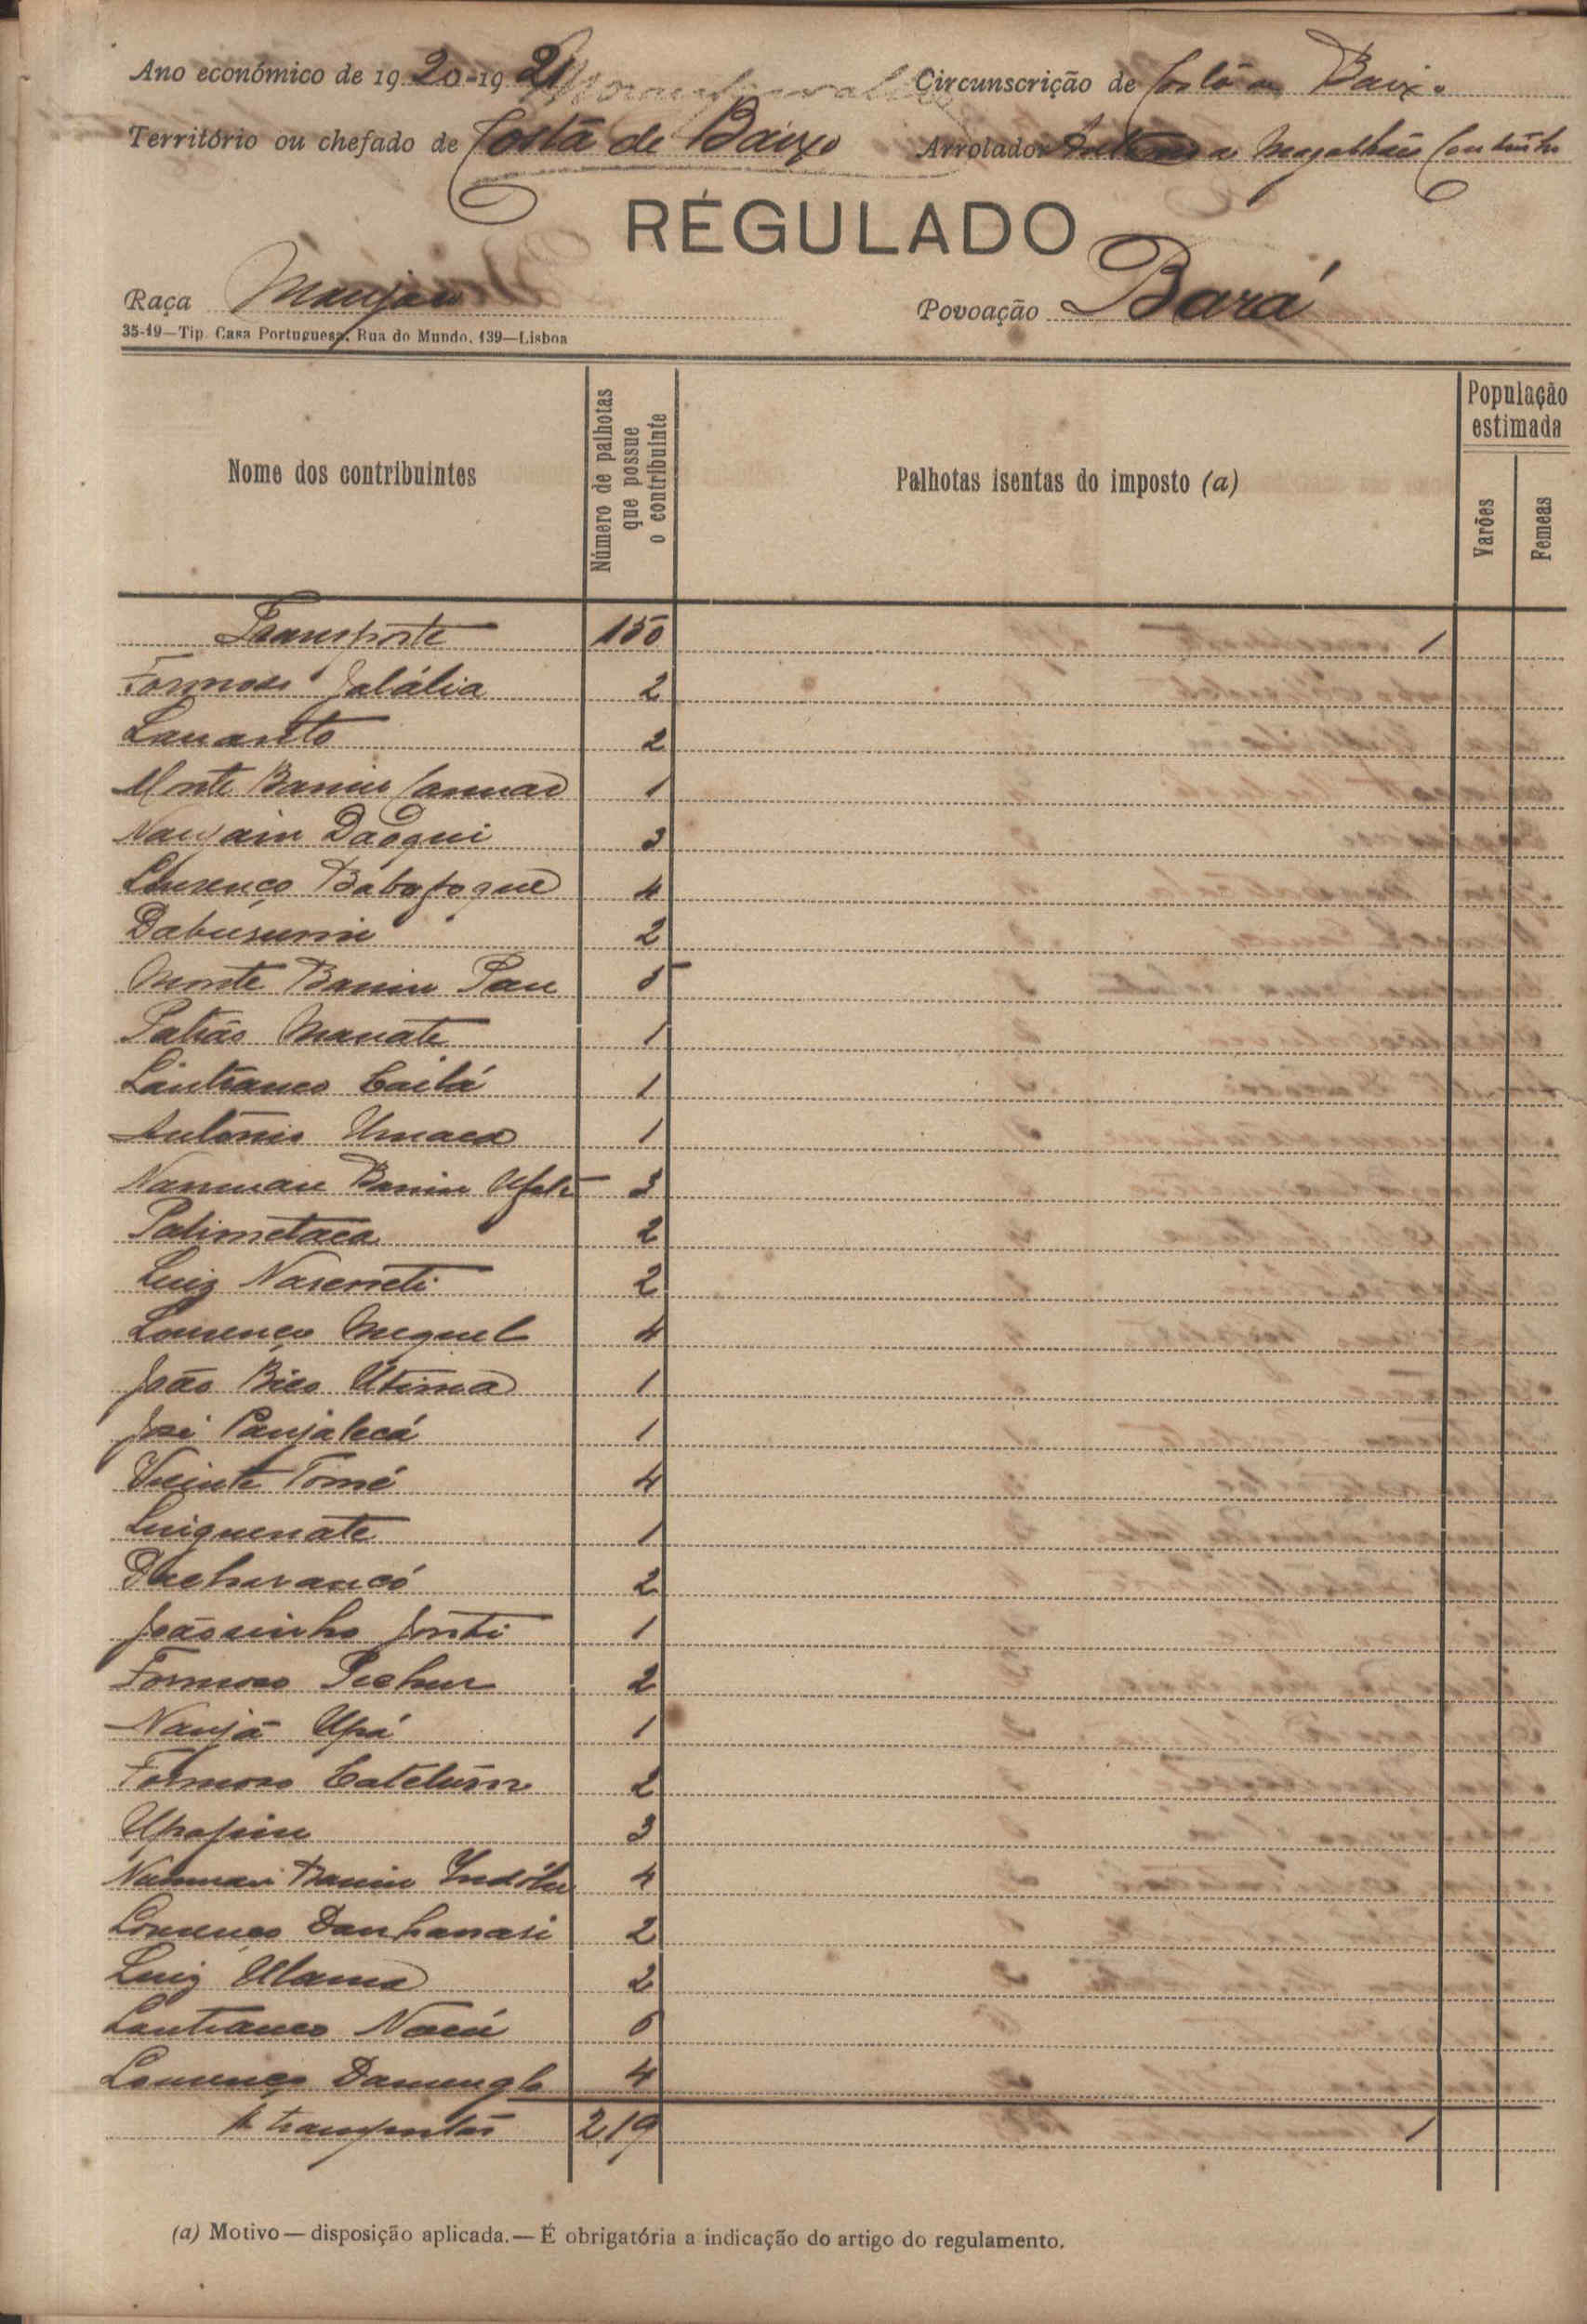 Ano económico de 1920-1921 Circunscrição de Costa de Baixo
Território ou chefado de Costa de Baixo Arrolador Antonio a Magalhães Coutinho
REGULADO
Raça Manjaco Povoação Bará
35-19—Tip. Casa Portuguesa, Rua do Mundo, 139—Lisboa
Nome dos contribuintes
Número de palhotas que possue o contribuinte
Palhotas isentas do imposto (a)
População estimada
Varões
Femeas
Transporte 150 1
Formoso Jalália 2
Lananto 2
Monte Banim Cannao 1
Naugain Dacqui 3
Lourenço Babofoque 4
Dabusumi 2
Monte Banim Pau 5
Patrão Manate 1
Lantranco Cailá 1
António Umaca 1
Nanmau Banim Ufate 3
Patimetaca 2
Luiz Naserreti 2
Lourenço Miguel 4
João Bico Utima 1
José Panjalecá 1
Vicinte Tomé 4
Luiquenate 1
Dachurancó 2
Joãosinho Jonti 1
Formoso Pechur 2
Naujá Upá 1
Formoso Catelum 2
Upapim 3
Nanmau Banim 4
Lourenço Danhanasi 2
Luiz Ulama 2
Lantranco Nacú 5
Lourenço 4
A transportar 219 1
(a) Motivo — disposição aplicada. — É obrigatória a indicação do artigo do regulamento.